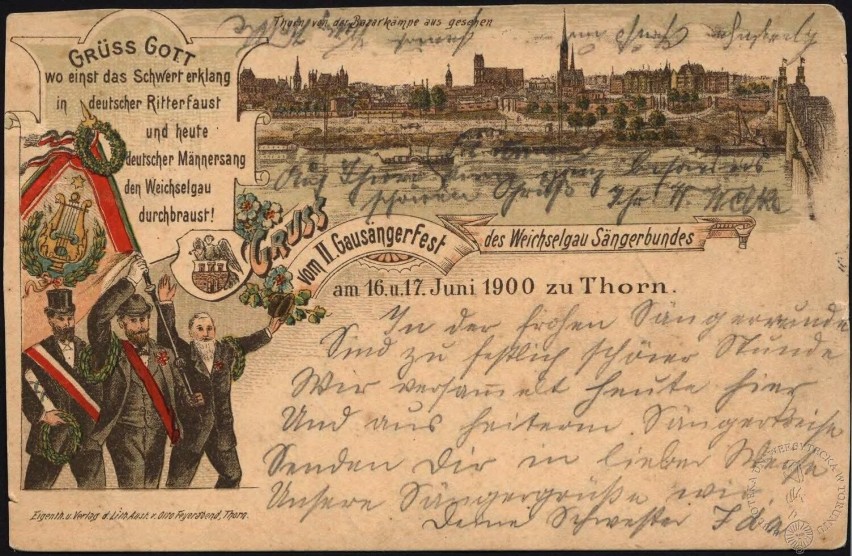 Thorn von der Bazarkämpe aus gesehen
GRÜSS GOTT
wo einst das Schwert erklang
in deutscher Ritterfaust
und heute
deutscher Männersang
den Weichselgau
durchbraust!
schönen Gruß
GRUSS
vom II. Gausängerfest
des Weichselgau Sängerbundes
am 16. u. 17. Juni 1900 zu Thorn.
In der frohen Sängerrunde
Sind zu festlich schöner Stunde
Wir versammelt heute hier
Und aus heiterm Sängerkreise
Senden Dir in lieber Weise
Unsere Sängergrüße wir.
Deine Schwester Ida
Eigenth. u. Verlag d. Lith. Anst. v. Otto Feyerabend, Thorn.